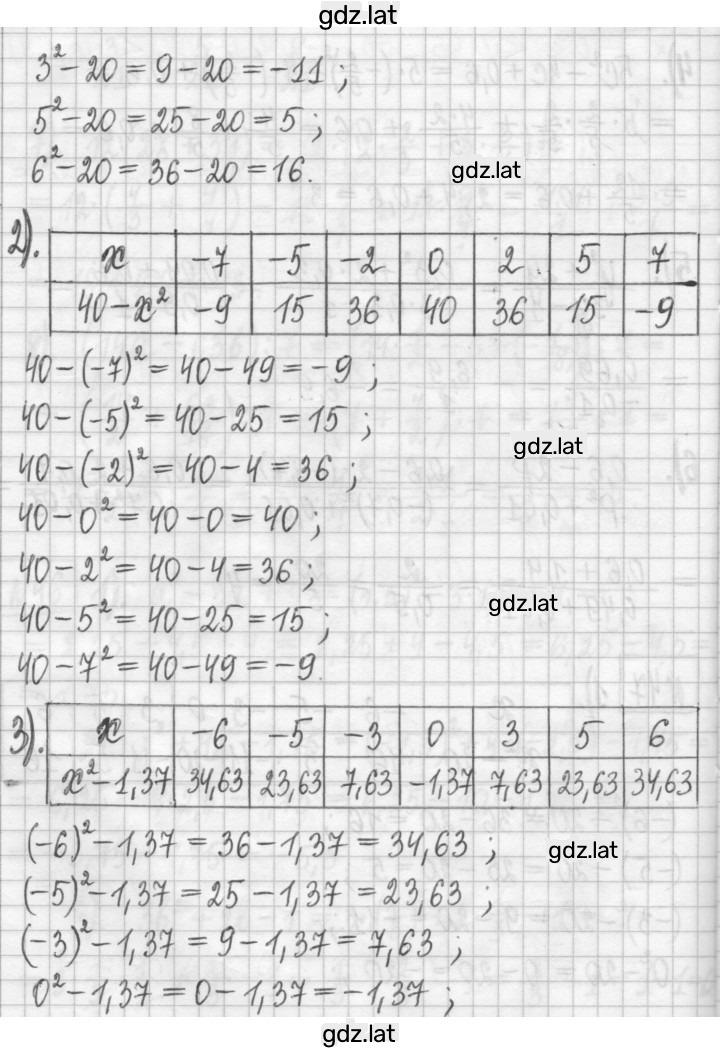 gdz.lat
3² – 20 = 9 – 20 = –11 ;
5² – 20 = 25 – 20 = 5 ;
6² – 20 = 36 – 20 = 16.
gdz.lat
2).
x –7 –5 –2 0 2 5 7
40 – x² –9 15 36 40 36 15 –9
40 – (–7)² = 40 – 49 = –9 ;
40 – (–5)² = 40 – 25 = 15 ;
gdz.lat
40 – (–2)² = 40 – 4 = 36 ;
40 – 0² = 40 – 0 = 40 ;
40 – 2² = 40 – 4 = 36 ;
gdz.lat
40 – 5² = 40 – 25 = 15 ;
40 – 7² = 40 – 49 = –9.
3).
x –6 –5 –3 0 3 5 6
x² – 1,37 34,63 23,63 7,63 –1,37 7,63 23,63 34,63
(–6)² – 1,37 = 36 – 1,37 = 34,63 ;
gdz.lat
(–5)² – 1,37 = 25 – 1,37 = 23,63 ;
(–3)² – 1,37 = 9 – 1,37 = 7,63 ;
0² – 1,37 = 0 – 1,37 = –1,37 ;
gdz.lat